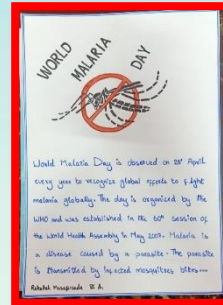 WORLD MALARIA DAY
World Malaria Day is observed on 25th April
every year to recognize global efforts to fight
malaria globally. The day is organized by the
WHO and was established in the 60th session of
the World Health Assembly in May 2007. Malaria is
a disease caused by a parasite. The parasite
is transmitted by infected mosquitoes bites...